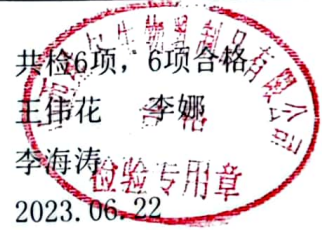 共检6项，6项合格
王伟花 李娜
李海涛
2023.06.22
生物制品有限公司
检验专用章